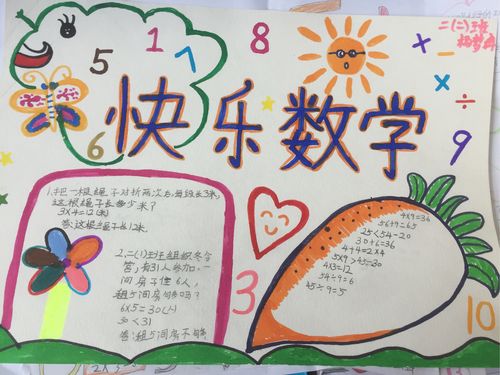 二(二)班
杨梦
5
1
7
8
×
-
×
÷
6
9
快乐数学
1.把一根绳子对折两次后,每段长3米,
这根绳子长多少米?
3×4=12(米)
答:这根绳子长12米.
2.二(1)班组织冬令
营,有31人参加.一
间房子住6人,
租5间房够吗?
6×5=30(人)
30<31
答:租5间房不够.
4×9=36
56+9=65
25<54-20
30+6=36
4+4=2×4
5×9>45-30
4×3=12
54÷9=6
45÷9=5
3
10